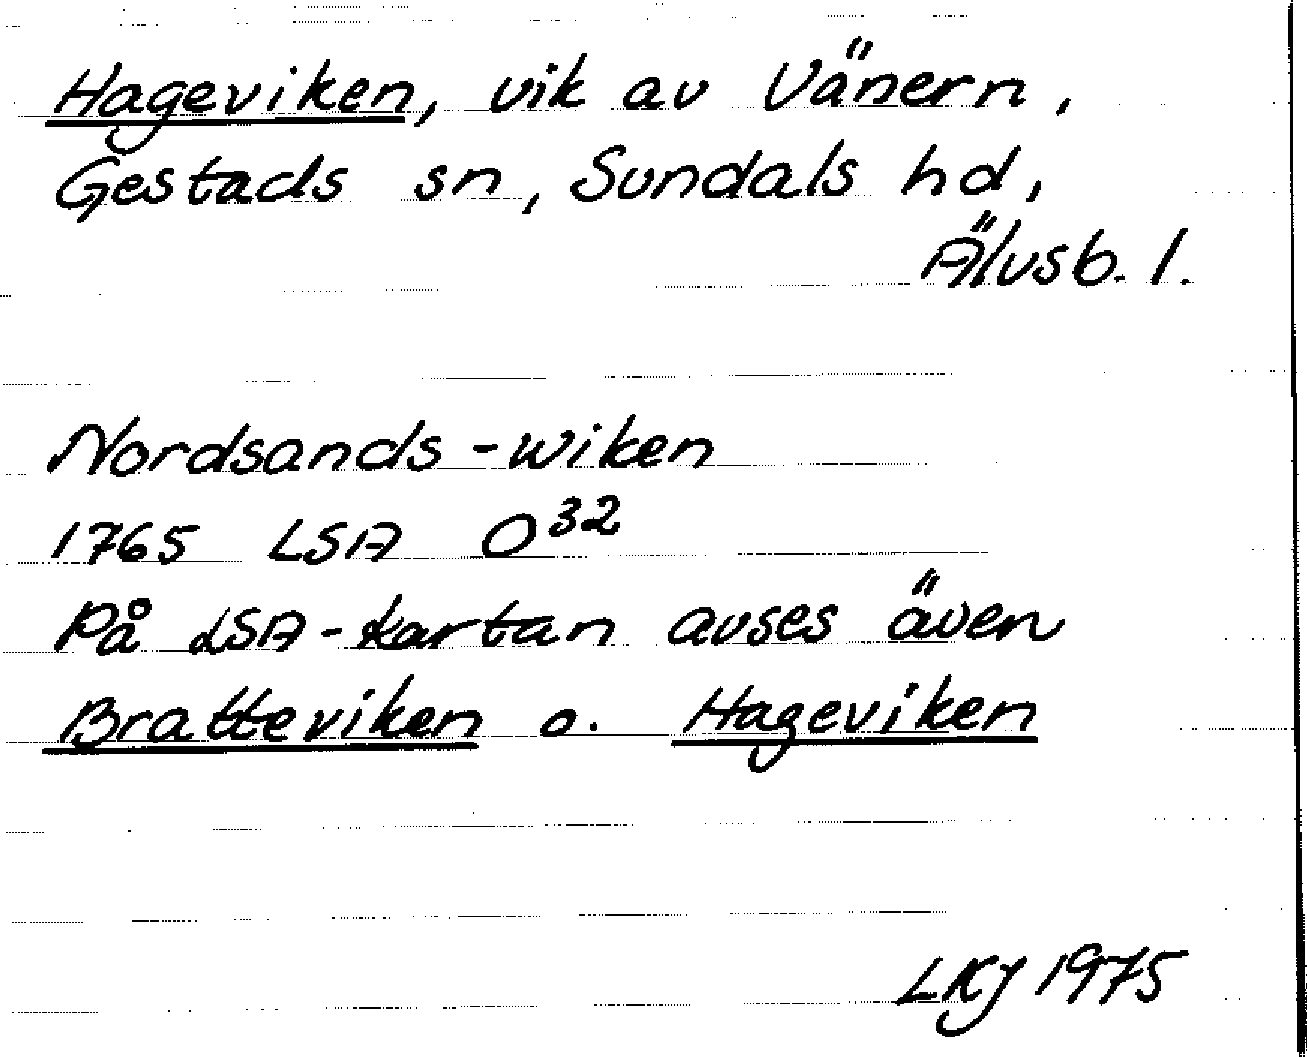 Hageviken, vik av Vänern,
Gestads sn, Sundals hd,
Älvsb. l.
Nordsands-wiken
1765 LSA O³²
På LSA-kartan avses även
Bratteviken o. Hageviken
LKJ 1975